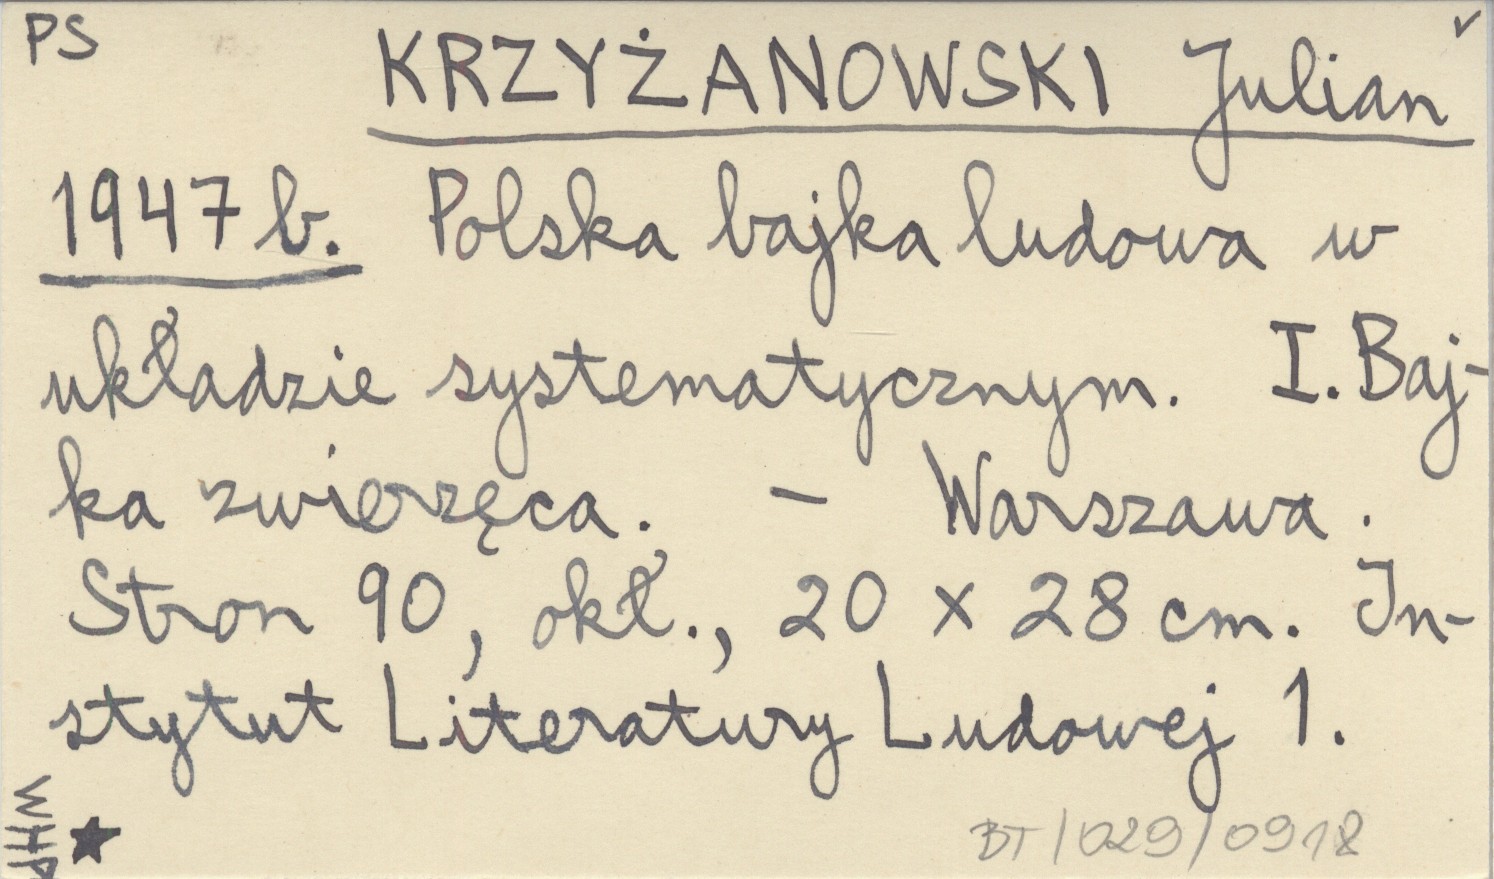 PS
KRZYŻANOWSKI Julian
1947b. Polska bajka ludowa w
układzie systematycznym. I. Baj-
ka zwierzęca. – Warszawa.
Stron 90, okł., 20 x 28 cm. In-
stytut Literatury Ludowej 1.
WHP
BT/029/0918